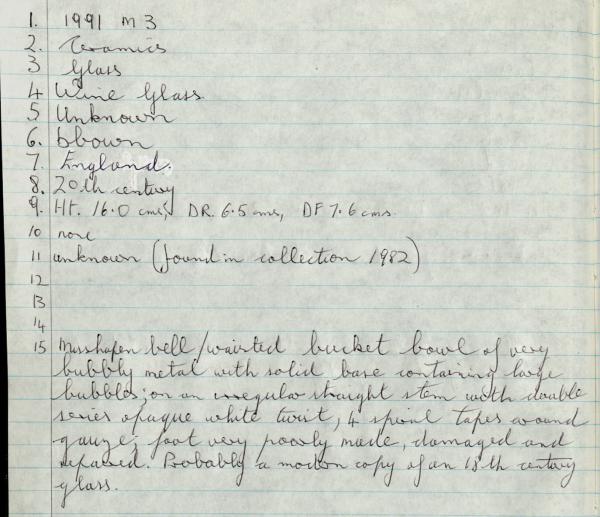 1. 1991 M 3
2. Ceramics
3 Glass
4 Wine Glass
5 Unknown
6. blown
7. England.
8. 20th century
9. Ht. 16.0 cms, DR. 6.5 cms, DF 7.6 cms.
10 none
11 unknown (found in collection 1982)
12
13
14
15 Misshapen bell/waisted bucket bowl of very
bubbly metal with solid base containing large
bubbles; on an irregular straight stem with double
series opaque white twist, 4 spiral tapes around
gauze; foot very poorly made, damaged and
repaired. Probably a modern copy of an 18th century
glass.